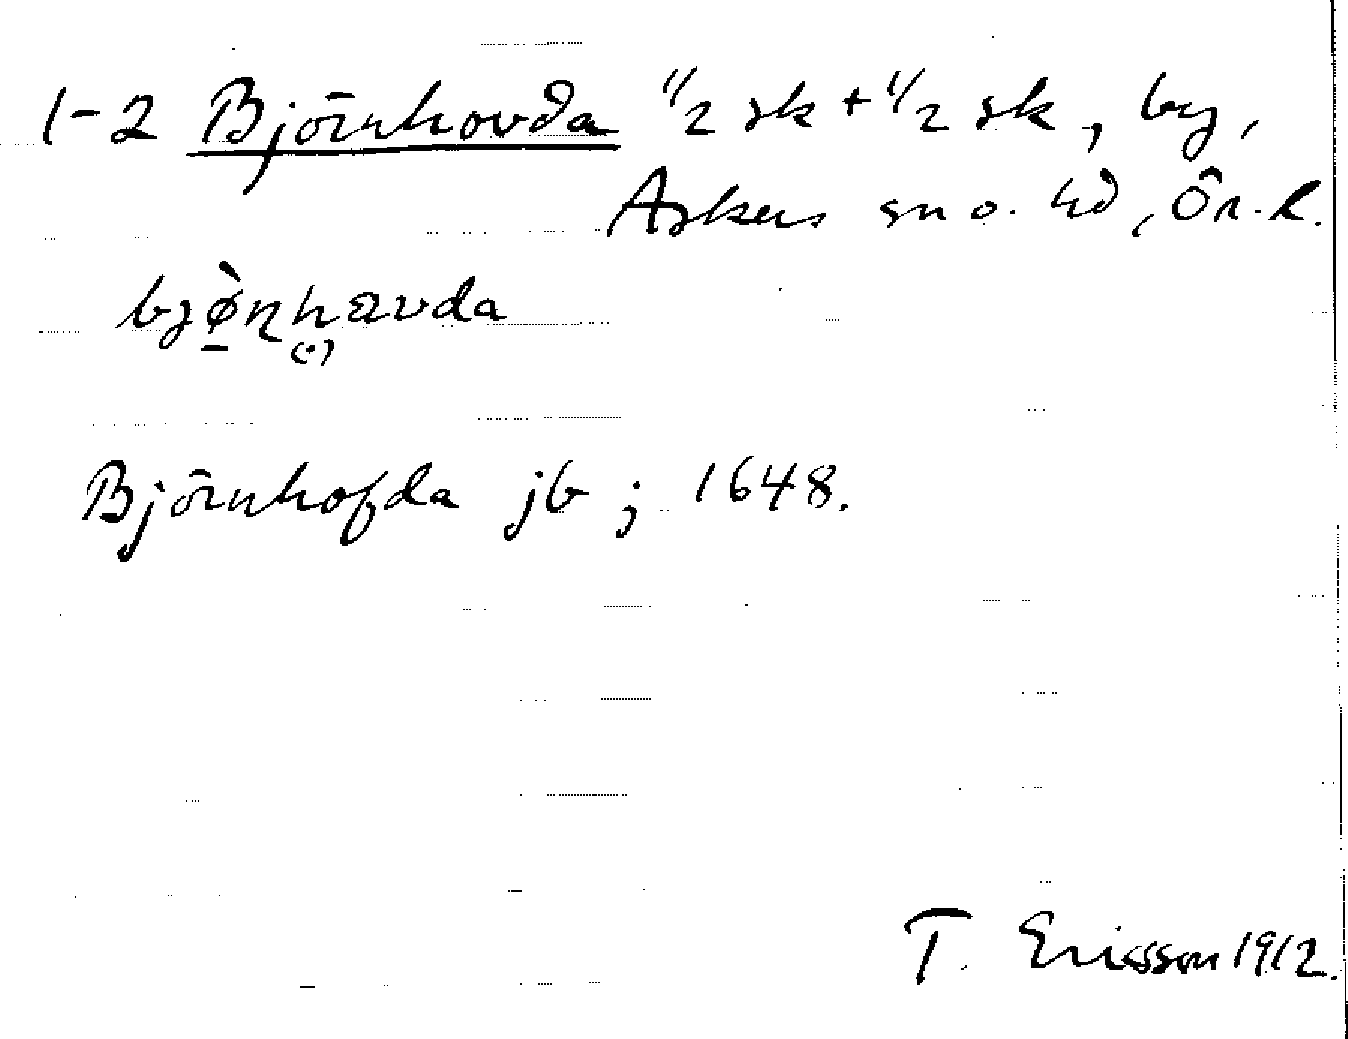 1-2 Björnhovda 1/2 sk + 1/2 sk, by,
Askers sn o. hd, Ör. l.
Björnhofda jb; 1648.
T. Ericsson 1912.